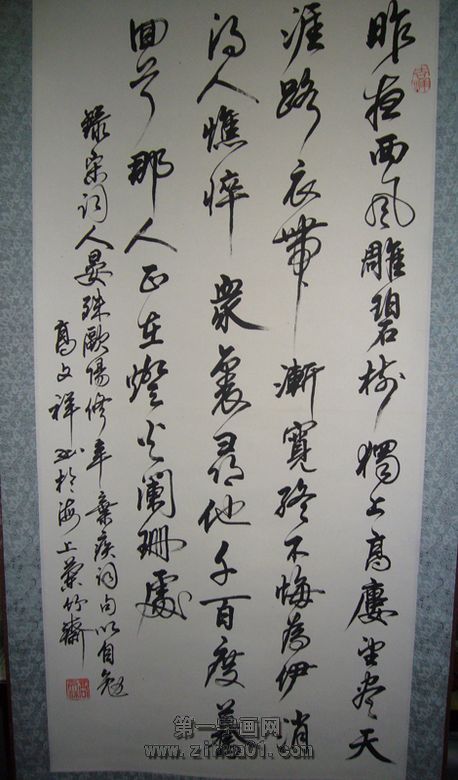 昨夜西风雕碧树独上高楼望尽天
涯路衣带渐宽终不悔为伊消
得人憔悴众里寻他千百度蓦
回首那人正在灯火阑珊处
录宋词人晏殊欧阳修辛弃疾词句以自勉
高文祥书于海上兰竹斋
第一字画网
www.zihua01.com